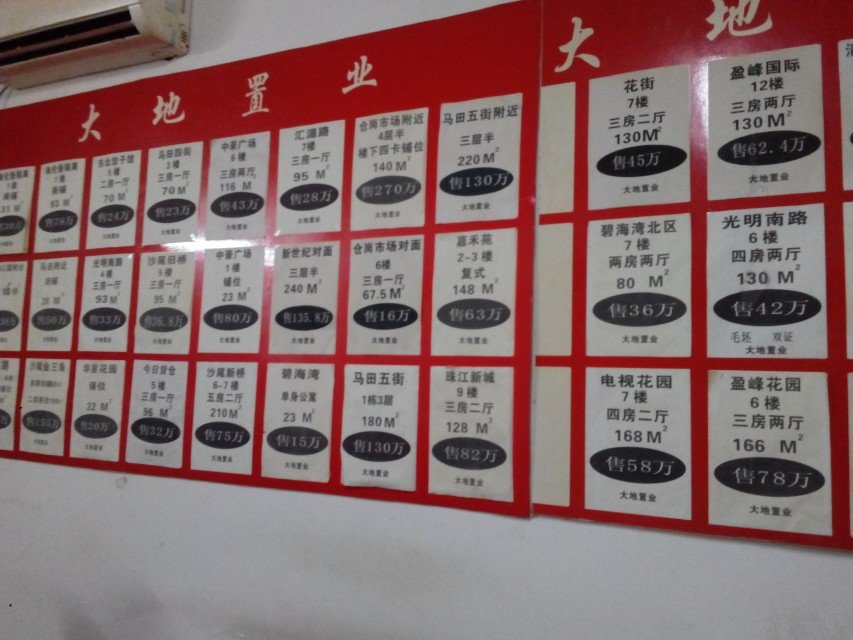 大地置业
大地
仓尚市场附近
4层半
楼下四卡铺位
140 M²
售270万
大地置业
马田五街附近
三层半
220 M²
售130万
大地置业
汇源路
7楼
三房一厅
95 M²
售28万
大地置业
中豪广场
6楼
三房两厅
116 M²
售43万
大地置业
马田四街
3楼
三房一厅
70 M²
售23万
大地置业
5楼
二房一厅
70 M²
售24万
大地置业
1楼
商铺
93 M²
售78万
光明南路
4楼
三房一厅
93 M²
售33万
大地置业
沙尾旧桥
5楼
三房一厅
95 M²
售36.8万
大地置业
中豪广场
1楼
铺位
23 M²
售80万
大地置业
新世纪对面
三层半
240 M²
售135.8万
大地置业
仓尚市场对面
6楼
三房一厅
67.5 M²
售16万
大地置业
嘉禾苑
2~3楼
复式
148 M²
售63万
大地置业
沙尾金三角
售155万
华星花园
铺位
22 M²
售26万
大地置业
今日货仓
5楼
三房一厅
96 M²
售32万
大地置业
沙尾新桥
6-7楼
五房二厅
210 M²
售75万
大地置业
碧海湾
单身公寓
23 M²
售15万
大地置业
马田五街
1栋3层
180 M²
售130万
大地置业
珠江新城
9楼
三房二厅
128 M²
售82万
大地置业
花街
7楼
三房两厅
130M²
售45万
大地置业
盈峰国际
12楼
三房两厅
130 M²
售62.4万
大地置业
碧海湾北区
7楼
两房两厅
80 M²
售36万
大地置业
光明南路
6楼
四房两厅
130 M²
售42万
毛坯 双证
大地置业
电视花园
7楼
四房二厅
168 M²
售58万
大地置业
盈峰花园
6楼
三房两厅
166 M²
售78万
大地置业